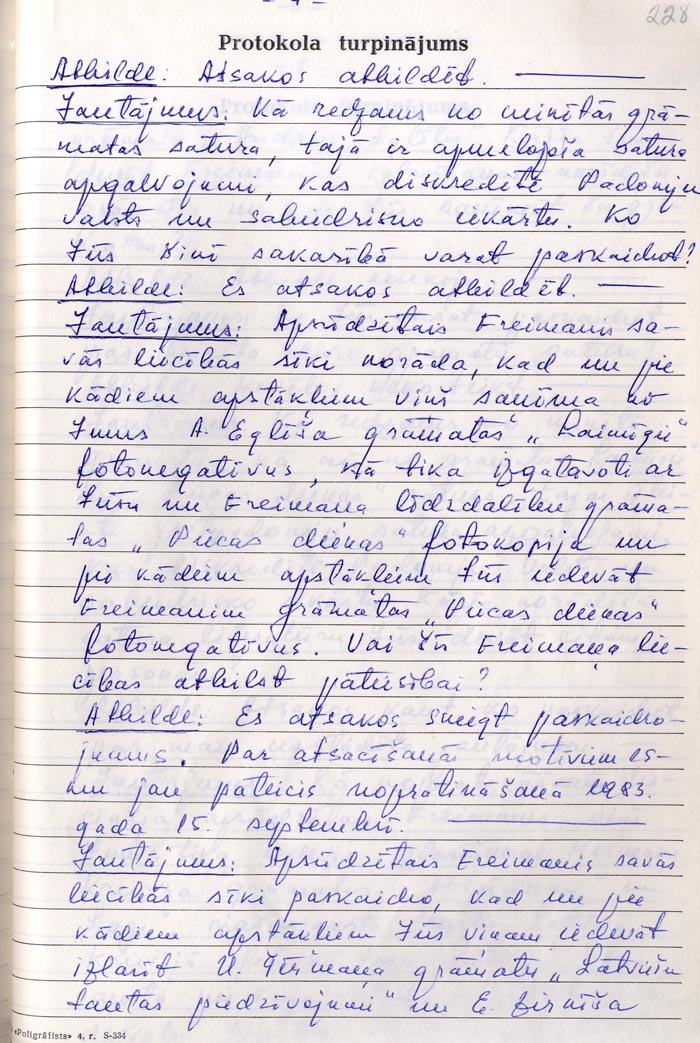 - 4 -
228
Protokola turpinājums
Atbilde: Atsakos atbildēt.
Jautājums: Kā redzams no minētās grā-
matas satura, tajā ir apmelojoša satura
apgalvojumi, kas diskreditē Padomju
valsts un sabiedrisko iekārtu. Ko
Jūs šinī sakarībā varat paskaidrot?
Atbilde: Es atsakos atbildēt.
Jautājums: Apsūdzētais Freimanis sa-
vās liecībās sīki norāda, kad un pie
kādiem apstākļiem viņš saņēma no
Jums A. Eglīša grāmatas "Laimīgie"
fotonegatīvus, kā tika izgatavoti ar
Jūsu un Freimaņa līdzdalību grāma-
tas "Pūcas dienas" fotokopija un
pie kādiem apstākļiem Jūs iedevāt
Freimanim grāmatas "Pūcas dienas"
fotonegatīvus. Vai šīs Freimaņa lie-
cības atbilst patiesībai?
Atbilde: Es atsakos sniegt paskaidro-
jumus. Par atsacīšanās motīviem es-
mu jau pateicis nopratināšanā 1983.
gada 15. septembrī.
Jautājums: Apsūdzētais Freimanis savās
liecībās sīki paskaidro, kad un pie
kādiem apstākļiem Jūs viņam iedevāt
izlasīt U. Ģērmaņa grāmatu "Latviešu
tautas piedzīvojumi" un E.
«Poligrāfists» 4. r. S-334